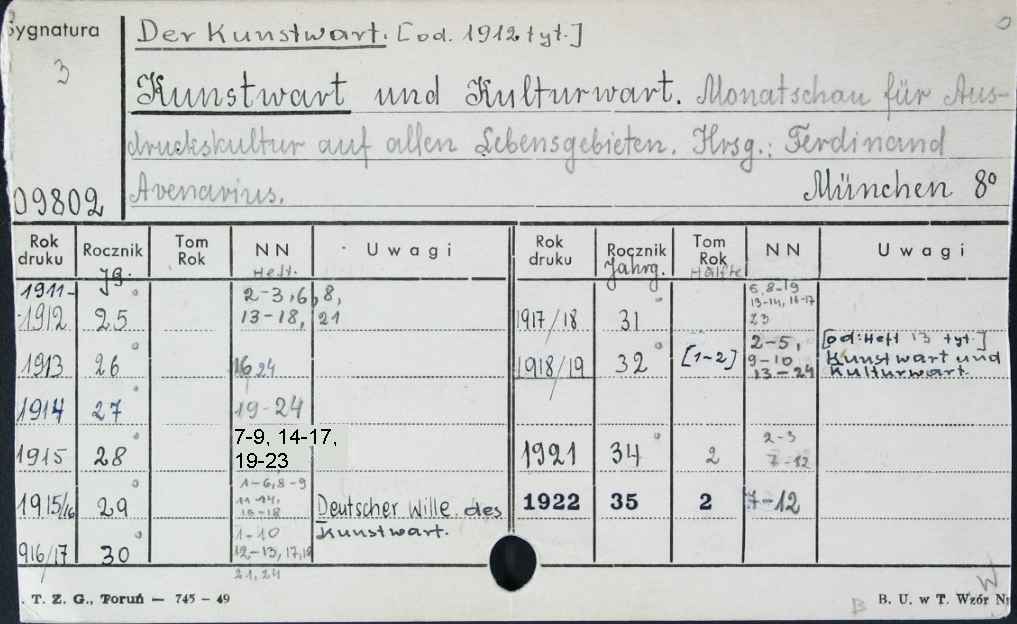 Sygnatura
3
09802
Der Kunstwart. [od. 1912 tyt.]
Kunstwart und Kulturwart. Monatschau für Aus-
druckskultur auf allen Lebensgebieten. Hrsg.: Ferdinand
Avenarius. München 8°
Rok druku Rocznik Tom Rok NN Uwagi Rok druku Rocznik Tom Rok NN Uwagi
Jg. Heft. Jahrg. Hälfte
1911-1912 25° 2-3, 6, 8,
13-18, 21
1913 26° 16 24
1914 27° 19-24
1915 28° 7-9, 14-17,
19-23
1915/16 29° 1-6, 8-9
11-14,
16-18
Deutscher Wille des
Kunstwart.
916/17 30° 1-10
12-13, 17, 19
21, 24
1917/18 31°
13-14, 16-17
23
1918/19 32° [1-2] 2-5,
9-10
13-24
[od: Heft 13 tyt.]
Kunstwart und
Kulturwart.
1921 34° 2 2-3
7-12
1922 35 2 7-12
. T. Z. G., Toruń — 745 - 49
B
W
B. U. w T. Wzór N